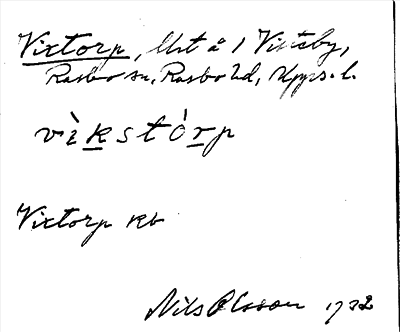 Vixtorp, lht å 1 Visteby,
Rasbo sn, Rasbo hd, Upps. l.
vìkstórp
Vixtorp kb
Nils Olsson 1932